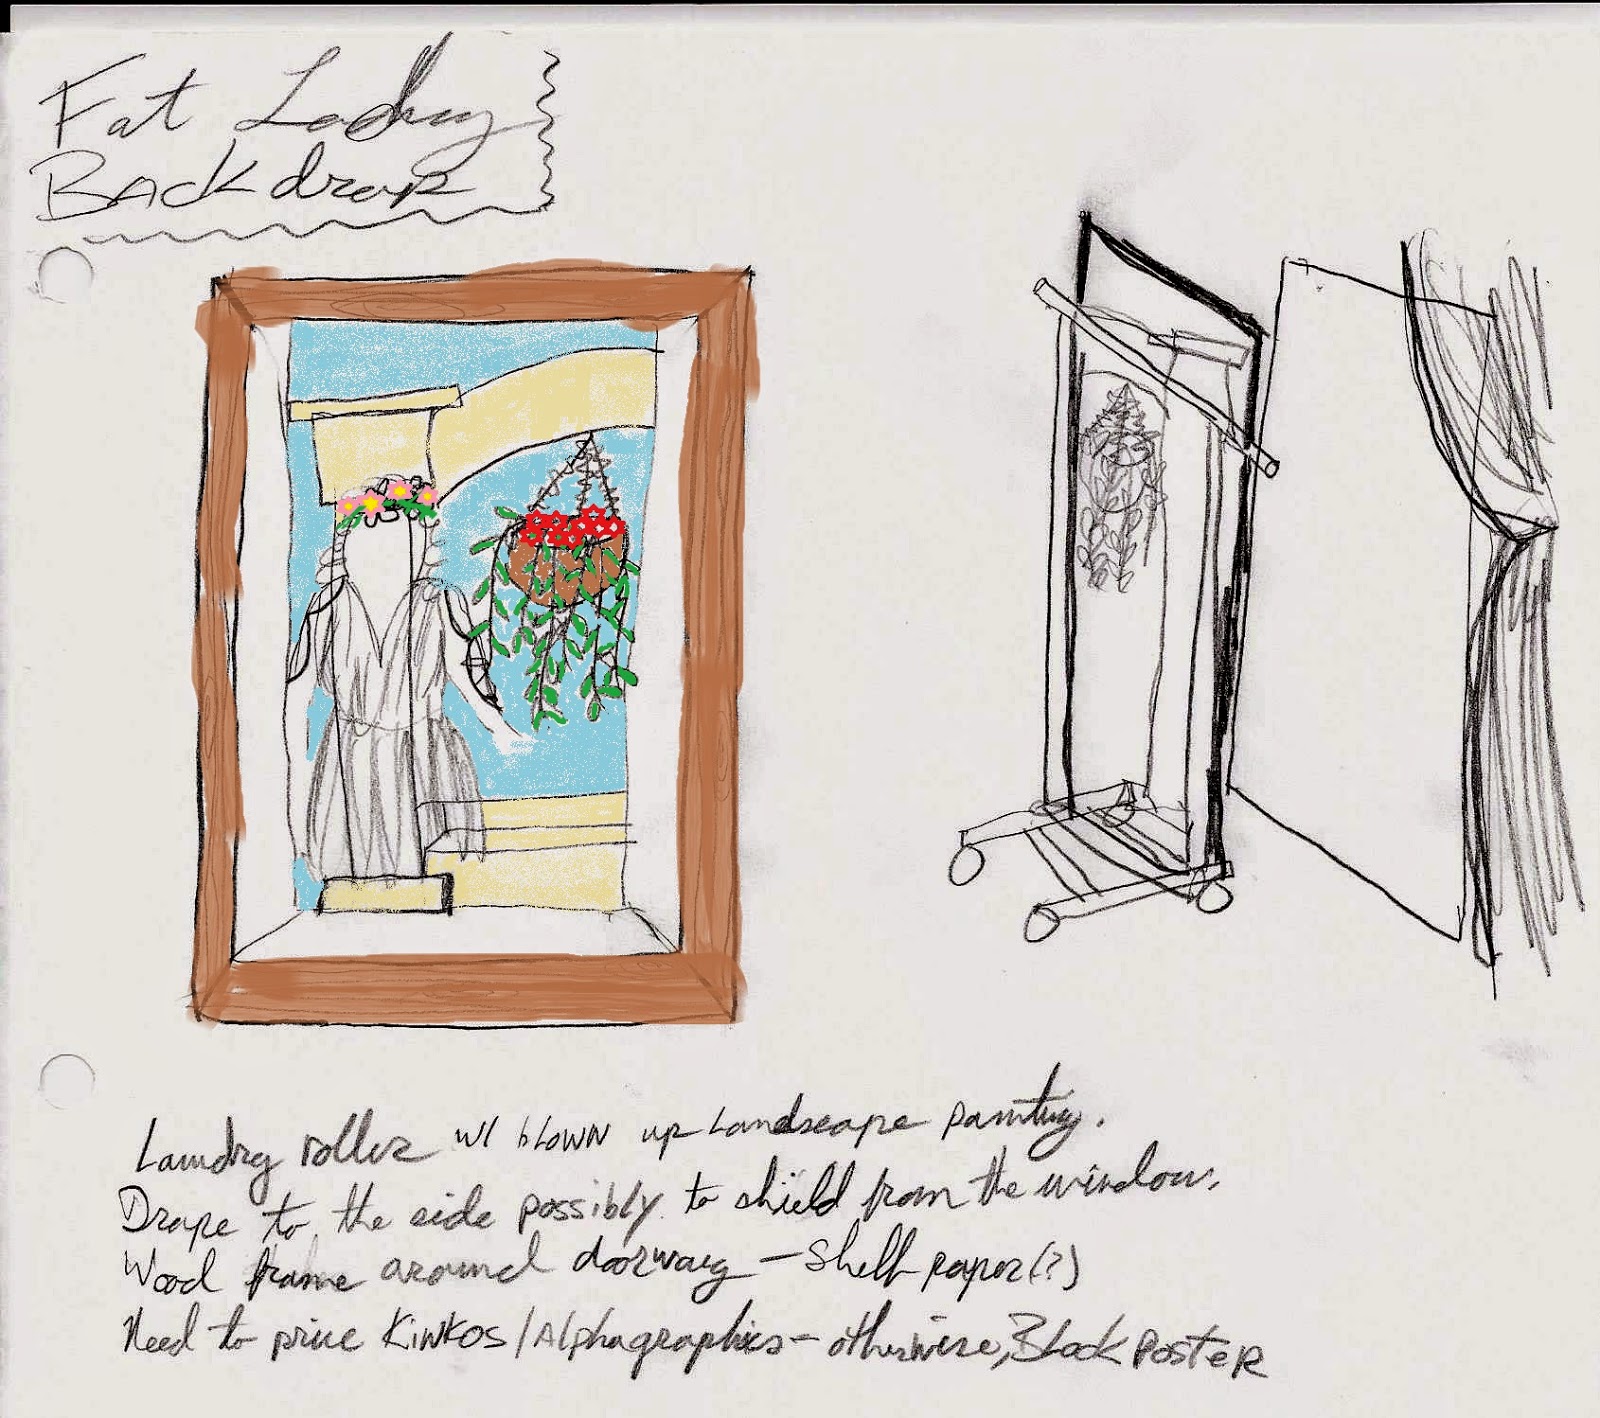 Fat Lady
Backdrop
Laundry roller w/ blown up Landscape painting.
Drape to the side possibly to shield from the window.
Wood frame around doorway - Shelf paper(?)
Need to price Kinkos/Alphagraphics - otherwise, Block Poster